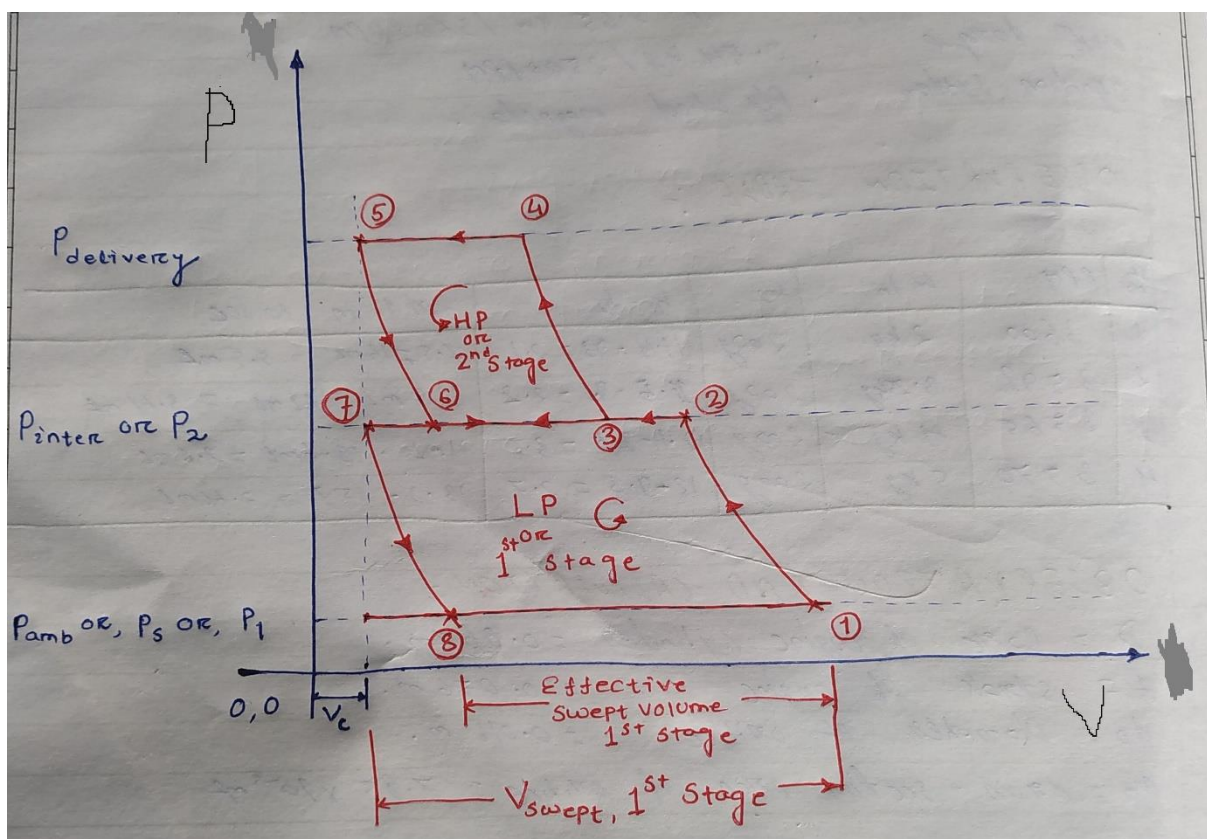 P
⑤
④
Pdelivery
HP
or
2nd stage
⑦
⑥
②
Pinter or P2
③
LP
or
1st stage
Pamb or, Ps or, P1
⑧
①
0,0
Vc
Effective
swept volume
1st stage
V
Vswept, 1st Stage